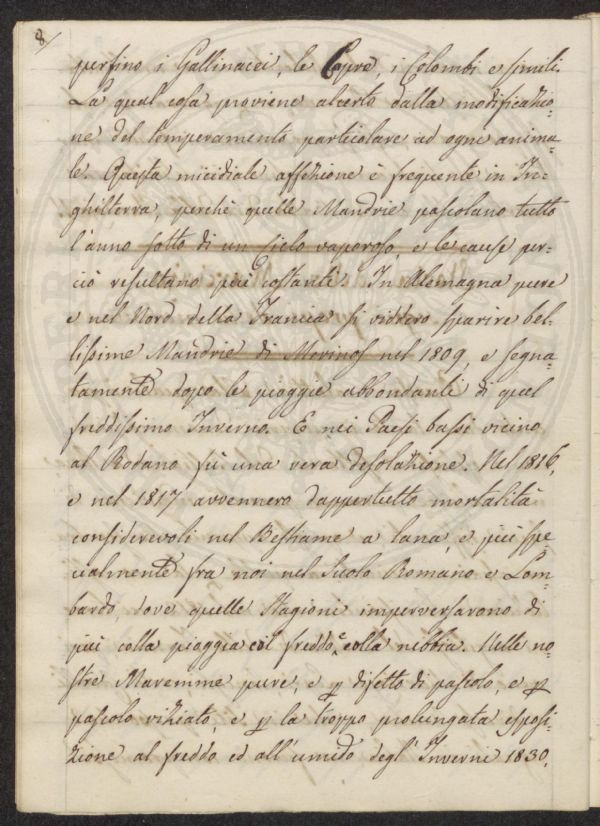 8/
perfino i Gallinacei, le Capre, i Colombi e simili.
La qual cosa proviene alcerto dalla modificazio-
ne del temperamento particolare ad ogni anima-
le. Questa micidiale affezione è frequente in In-
ghilterra, perchè quelle Mandrie pascolano tutto
l'anno sotto di un cielo vaporoso, e le cause per-
ciò resultano più costanti. In Alemagna pure
e nel Nord della Francia si viddero sparire bel-
lissime Mandrie di Merinos nel 1809, e segna-
tamente dopo le pioggie abbondanti di quel
freddissimo Inverno. E nei Paesi bassi vicino
al Rodano fù una vera desolazione. Nel 1816,
e nel 1817 avvennero dappertutto mortalità
considerevoli nel Bestiame a lana, e più spe-
cialmente fra noi nel Suolo Romano e Lom-
bardo, dove quelle Stagioni imperversarono di
più colla pioggia col freddo e colla nebbia. Nelle no-
stre Maremme pure, e p difetto di pascolo, e p
pascolo viziato, e p la troppo prolungata esposi-
zione al freddo ed all'umido degl'Inverni 1830,